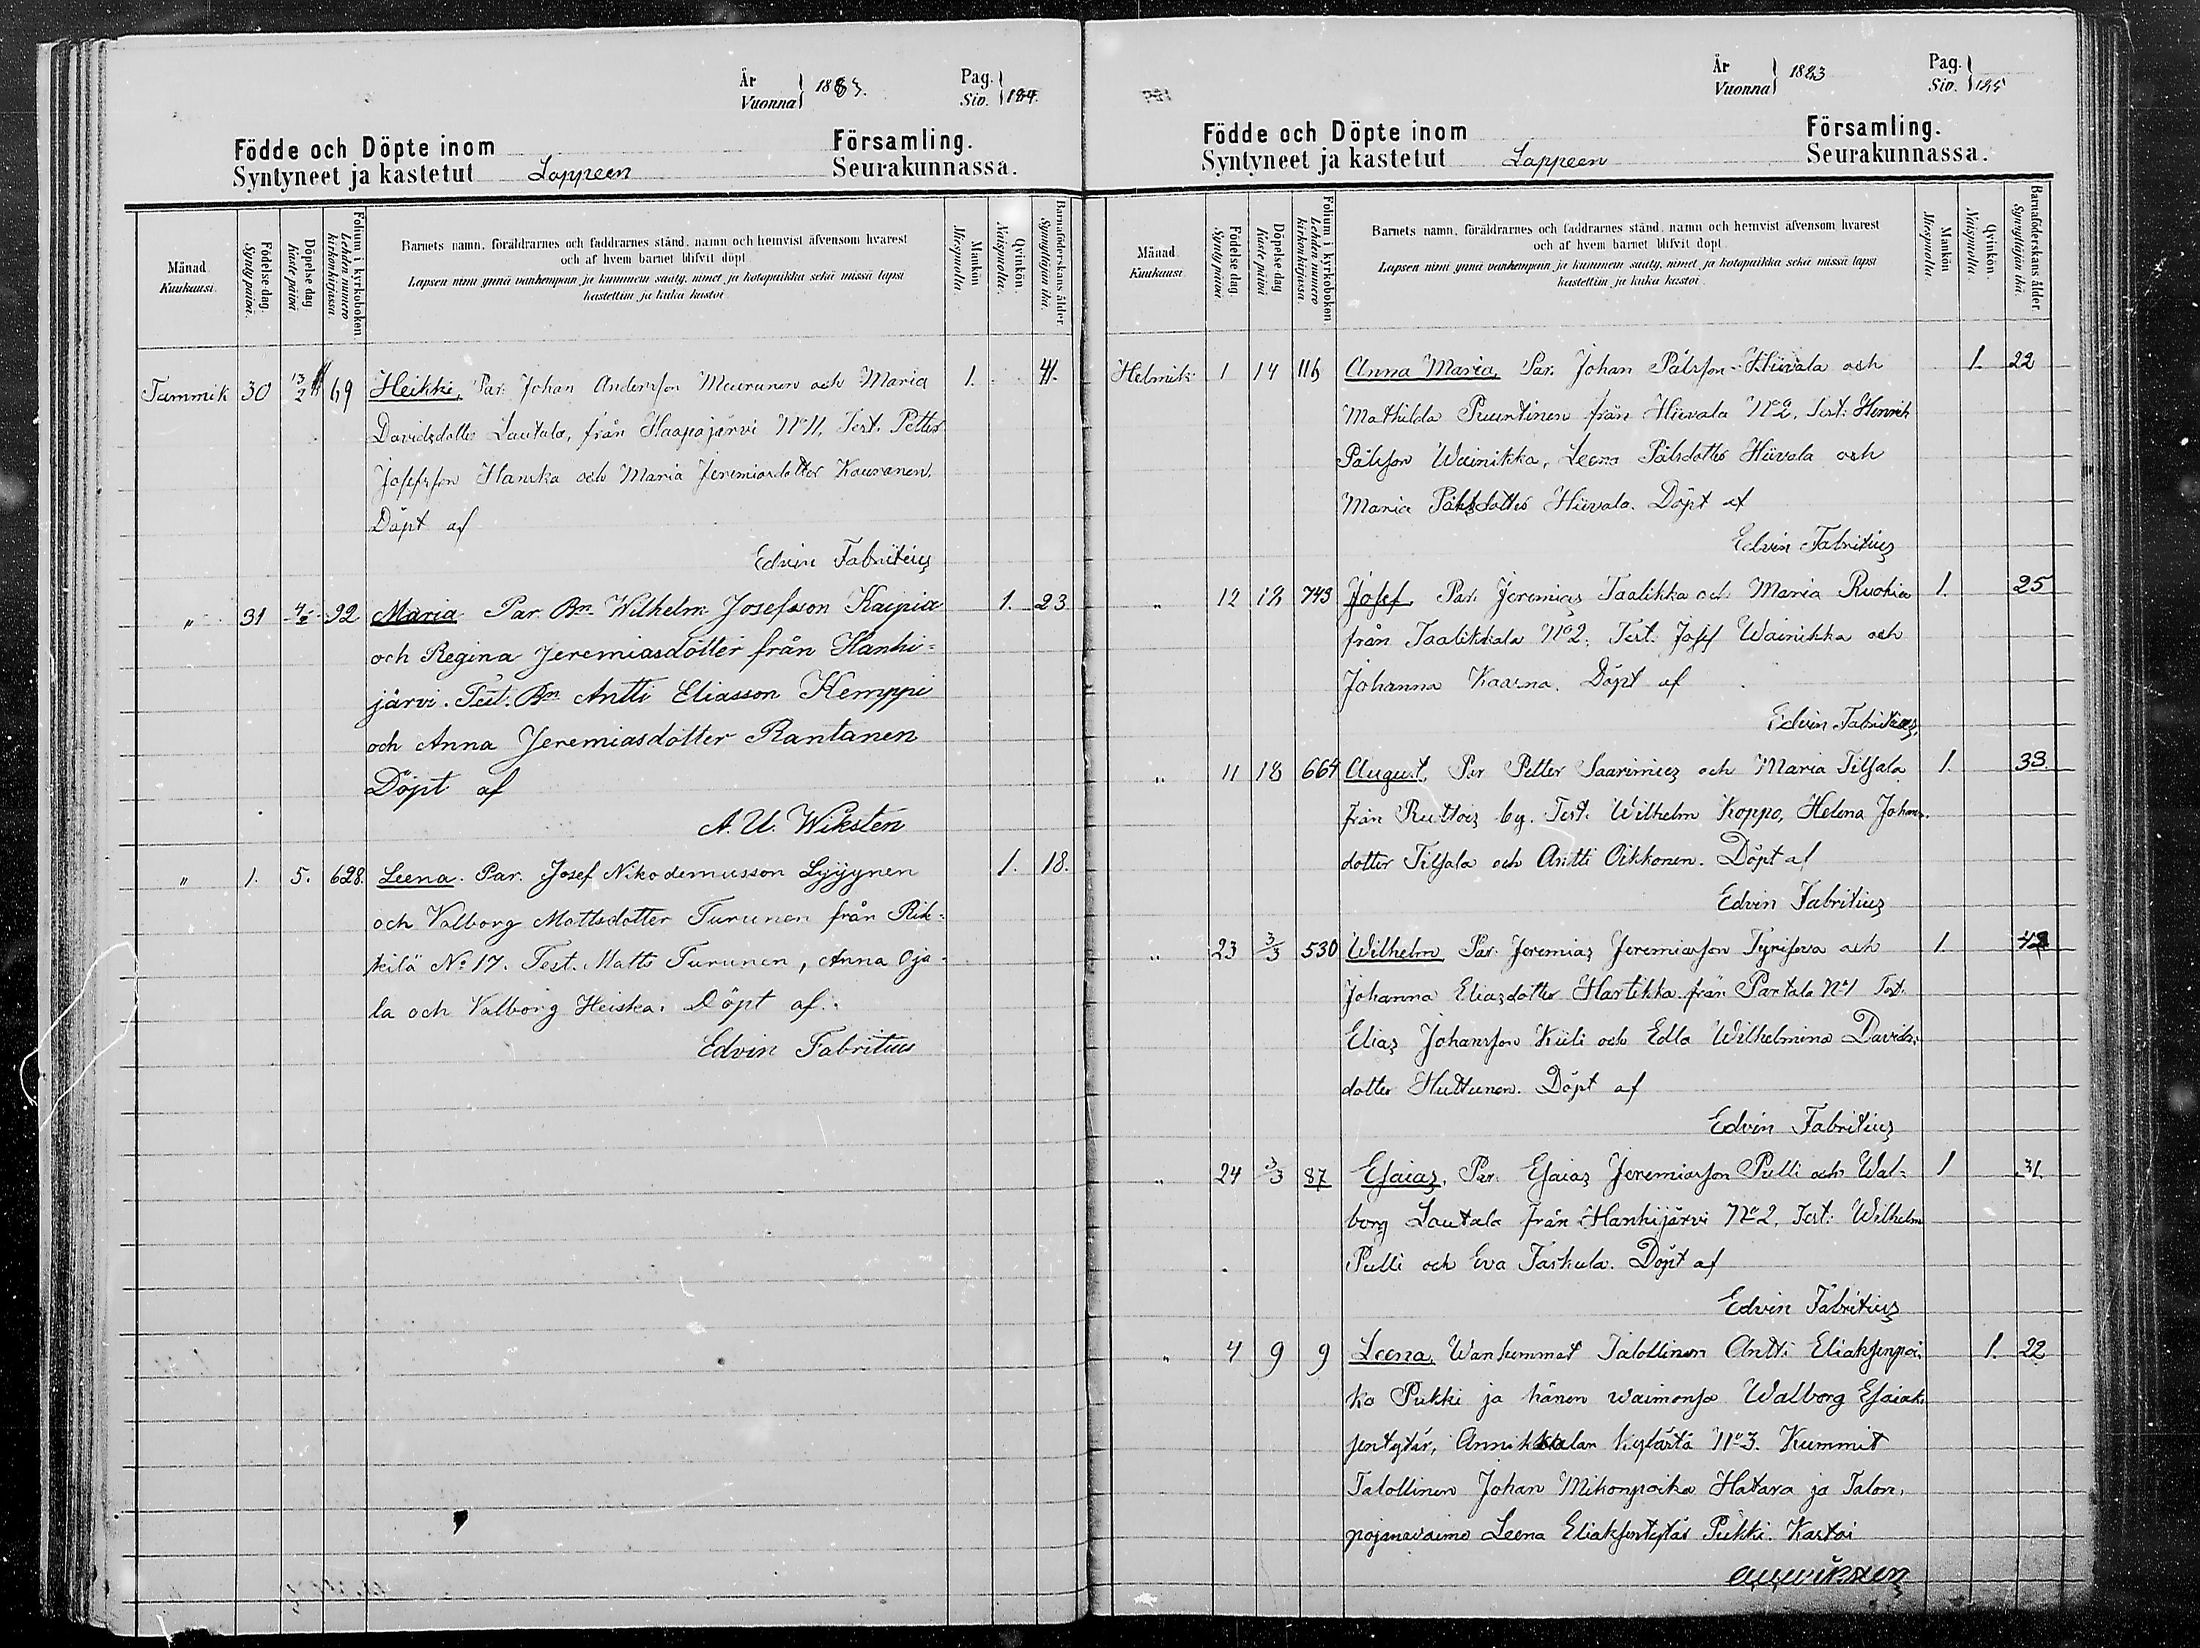 År
Vuonna
1883.
Pag.
Siv.
184.
Födde och Döpte inom
Församling.
Syntyneet ja kastetut Lappeen Seurakunnassa.
Månad.
Kuukausi.
Födelse dag.
Synty päivä.
Döpelse dag
Kaste päivä
Folium i kyrkoboken.
Lehden numero kirkonkirjassa
Barnets namn, föräldrarnes och faddrarnes stånd, namn och hemvist äfvensom hvarest
och af hvem barnet blifvit döpt.
Lapsen nimi ynnä vanhempain ja kummein sääty, nimet ja kotopaikka sekä missä lapsi
kastettiin ja kuka kastoi.
Mankön
Miespuolia.
Qvinkön.
Naispuolia.
Barnaföderskans ålder.
Synnyttäjän ikä.
Tammik 30 13/2 69 Heikki, Par. Johan Andersson Muurunen och Maria 1. 41.
Davidsdotter Lautala, från Haapajärvi No 11, Test. Petter
Josefsson Hanska och Maria Jeremiasdotter Kauranen.
Döpt af
Edvin Fabritius
" 31 4/2 92 Maria Par. Bn. Wilhelm Josefsson Kaipia 1. 23
och Regina Jeremiasdotter från Hanhi=
järvi. Test. Bn Antti Eliasson Kemppi
och Anna Jeremiasdotter Rantanen
Döpt af
A. U. Wiksten
" 1. 5. 628. Leena. Par. Josef Nikodemusson Lyyynen 1. 18.
och Valborg Mattsdotter Turunen från Rik=
kilä No 17. Test. Matts Turunen, Anna Oja=
la och Valborg Heiska. Döpt af.
Edvin Fabritius
År
Vuonna
1883
Pag.
Siv.
185
Födde och Döpte inom
Församling.
Syntyneet ja kastetut Lappeen Seurakunnassa.
Månad.
Kuukausi.
Födelse dag.
Synty päivä.
Döpelse dag
Kaste päivä
Folium i kyrkoboken.
Lehden numero kirkonkirjassa.
Barnets namn, föräldrarnes och faddrarnes stånd, namn och hemvist äfvensom hvarest
och af hvem barnet blifvit döpt.
Lapsen nimi ynnä vanhempain ja kummein sääty, nimet ja kotopaikka sekä missä lapsi
kastettiin ja kuka kastoi.
Mankön
Miespuolia.
Qvinkön.
Naispuolia.
Barnaföderskans ålder.
Synnyttäjän ikä.
Helmik 1 14 116 Anna Maria, Par. Johan Pålsson Hiivala och 1. 22
Mathilda Puuntinen från Hiivala No 2, Test: Henrik
Pålsson Wainikka, Leena Pålsdotter Hiivala och
Maria Pålsdotter Hiivala. Döpt af
Edvin Fabritius
" 12 18 743 Josef, Par. Jeremias Taalikka och Maria Ruohia 1. 25
från Taalikkala No 2. Test. Josef Wainikka och
Johanna Kaarna. Döpt af
Edvin Fabritius.
" 11 18 664 August, Par Petter Saarimies och Maria Tiljala 1. 33.
från Ruttois by. Test. Wilhelm Koppo, Helena Johans-
dotter Tiljala och Antti Oikkonen. Döpt af
Edvin Fabritius
" 23 3/3 530 Wilhelm, Par. Jeremias Jeremiasson Tyrisova och 1.
Johanna Eliasdotter Hartikka från Partala No 1 Test.
Elias Johansson Kiili och Edla Wilhelmina Davids-
dotter Huttunen. Döpt af
Edvin Fabritius
" 24 3/3 87 Esaias, Par. Esaias Jeremiasson Pulli och Wal= 1 31.
borg Lautala från Hanhijärvi No 2, Test: Wilhelm
Pulli och Eva Taskula. Döpt af
Edvin Fabritius
" 4 9 9 Leena, Wanhemmat Talollinen Antti Eliaksenpoi- 1. 22
ka Pukki ja hänen waimonsa Walborg Esaiak-
sentytär, Annikkalan kylästä No 3. Kummit
Talollinen Johan Mikonpoika Hatara ja Talon-
pojanwaimo Leena Eliaksentytär Pukki. Kastoi
A. U. Wiksten